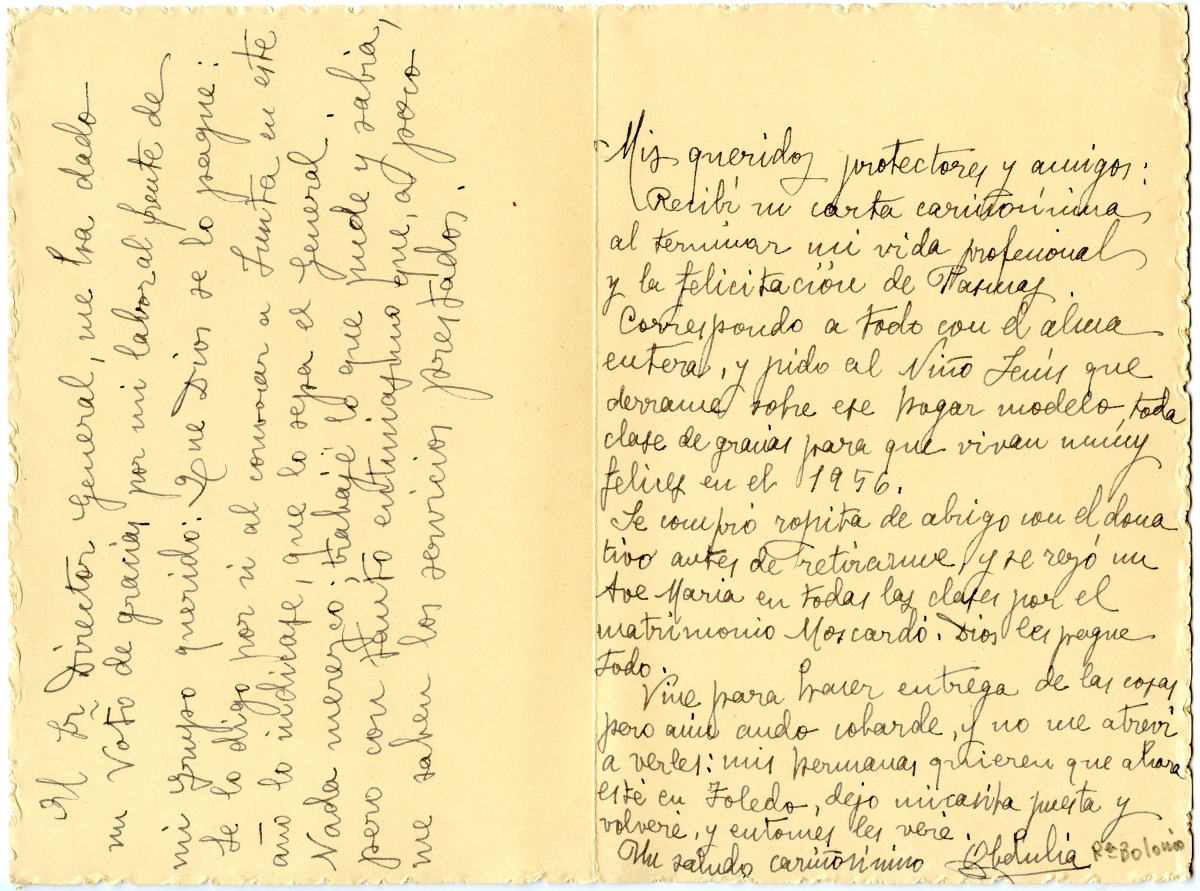 Mis queridos protectores y amigos:
Recibí su carta cariñosísima
al terminar mi vida profesional
y la felicitación de Pascuas.
Correspondo a todo con el alma
entera, y pido al Niño Jesús que
derrame sobre ese hogar modelo, toda
clase de gracias para que vivan muúy
felices en el 1956.
Se compró ropita de abrigo con el dona
tivo antes de retirarme, y se rezó un
Ave Maria en todas las clases por el
matrimonio Moscardó. Dios les pague
todo.
Vine para hacer entrega de las cosas
pero aún ando cobarde, y no me atreví
a verles: mis hermanas quieren que ahora
esté en Toledo, dejo mi casita puesta y
volveré, y entonces les veré.
Un saludo cariñosísimo Obdulia
Rª Bolonio
El Sr Director General, me ha dado
un Voto de gracias por mi labor al frente de
mi grupo querido: Que Dios se lo pague:
Se lo digo por si al convocar a Junta en este
año lo indicase, que lo sepa el General.
Nada merezco: trabajé lo que pude y sabía,
pero con tanto entusiasmo que, a poco
me saben los servicios prestados.